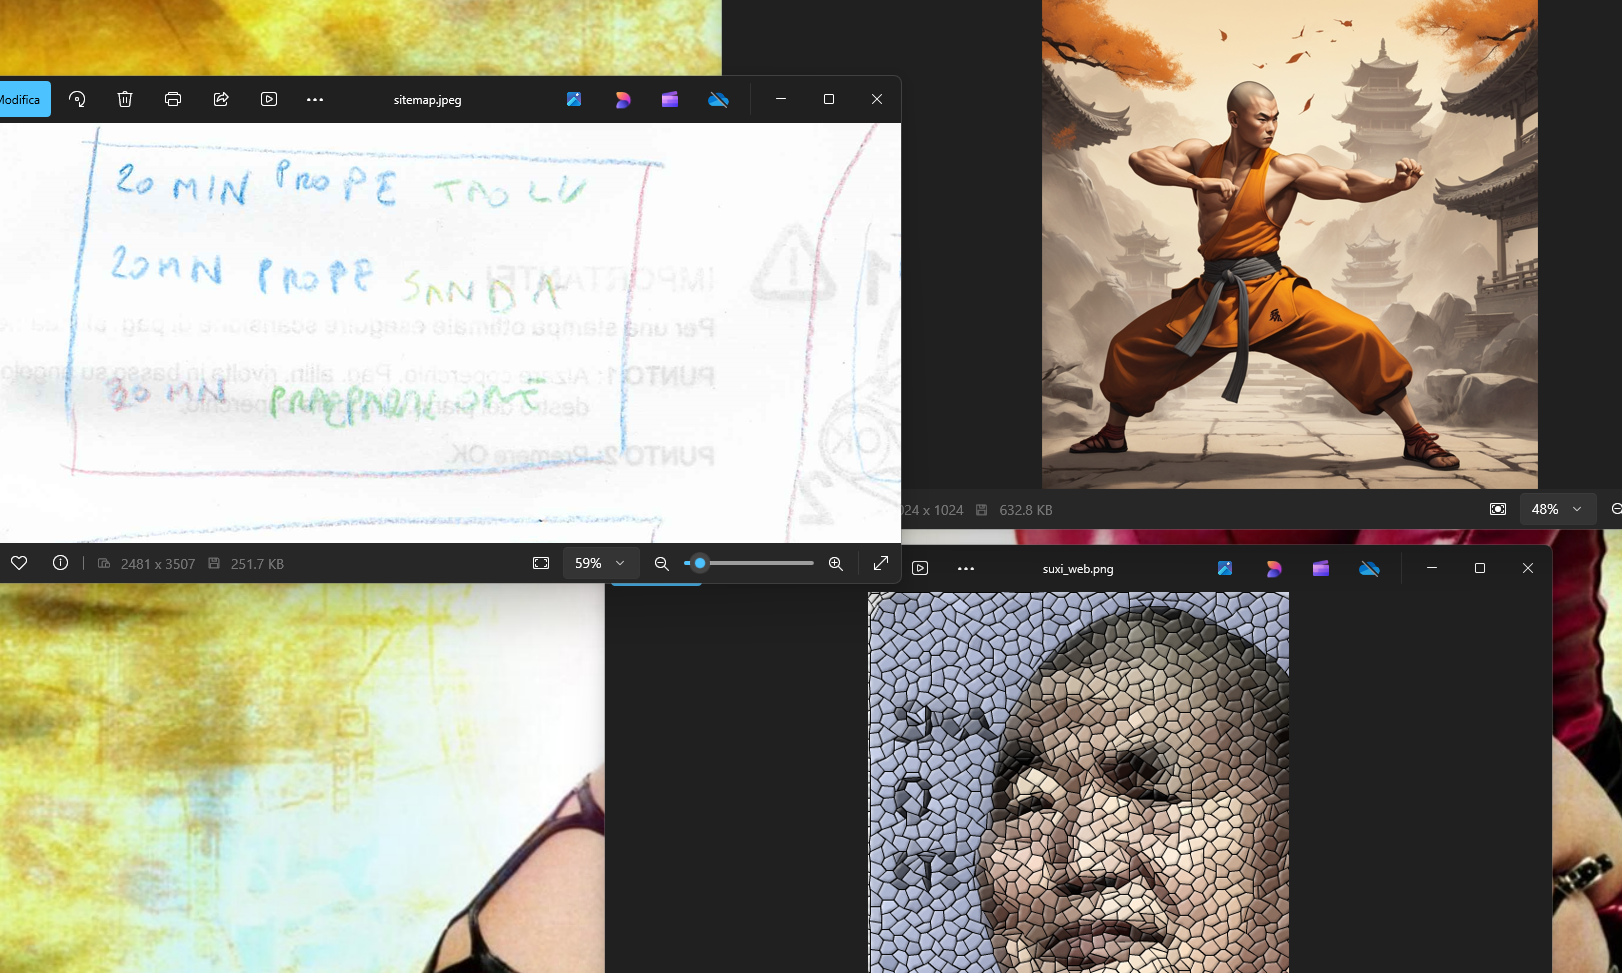 Modifica
sitemap.jpeg
20 MIN PROPE TAOLU
20 MN PROPE SANDA
IMPORTANTE!
Per una stampa ottimale eseguire scansione di pag.
PUNTO 1: Alzare coperchio. Pag. allin. rivolta in basso su angolo
destro del piano, coperchio.
PUNTO 2: Premere OK.
OK
1
2
30 MN
2481 x 3507
251.7 KB
59%
024 x 1024
632.8 KB
48%
suxi_web.png